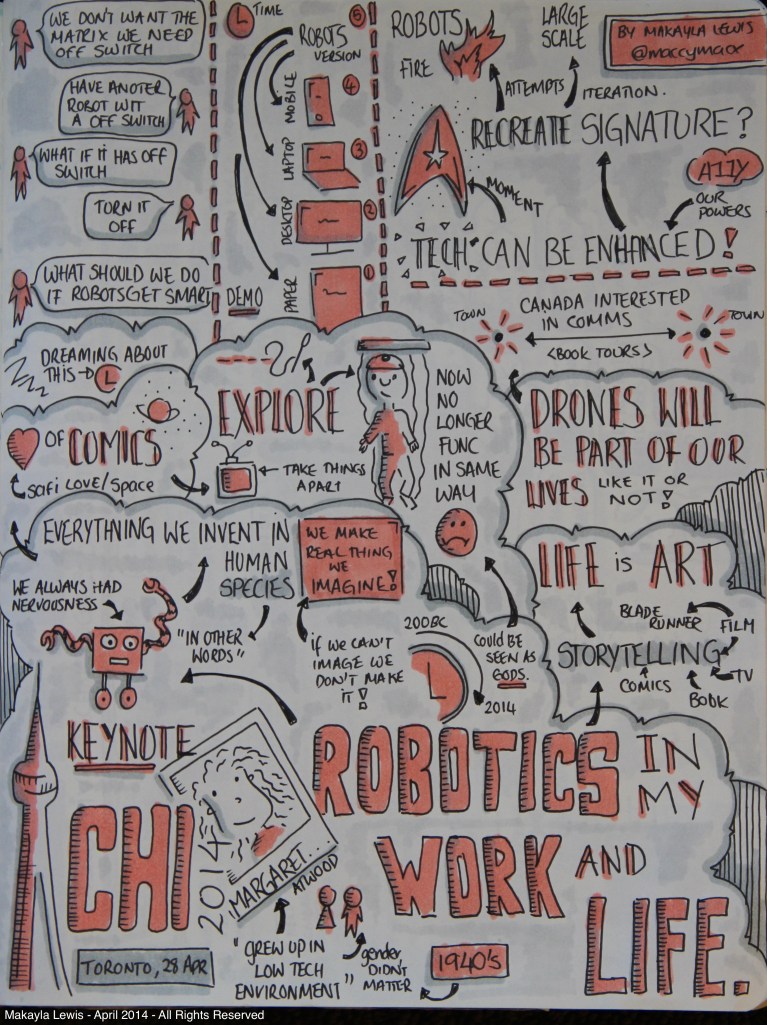 WE DON'T WANT THE
MATRIX WE NEED
OFF SWITCH
HAVE ANOTER
ROBOT WIT
A OFF SWITCH
WHAT IF IT HAS OFF
SWITCH
TURN IT
OFF
WHAT SHOULD WE DO
IF ROBOTS GET SMART
TIME
ROBOTS
VERSION
5
MOBILE
4
LAPTOP
3
DESKTOP
2
PAPER
1
DEMO
ROBOTS
FIRE
LARGE
SCALE
BY MAKAYLA LEWIS
@maccymacx
ATTEMPTS
ITERATION.
RECREATE SIGNATURE?
A11Y
OUR
POWERS
MOMENT
TECH CAN BE ENHANCED!
TOWN
CANADA INTERESTED
IN COMMS
TOWN
<BOOK TOURS>
DREAMING ABOUT
THIS
OF COMICS
SCIFI LOVE/SPACE
EXPLORE
TAKE THINGS
APART
NOW
NO
LONGER
FUNC
IN SAME
WAY
DRONES WILL
BE PART OF OUR
LIVES LIKE IT OR
NOT!
EVERYTHING WE INVENT IN
HUMAN
SPECIES
WE MAKE
REAL THING
WE
IMAGINE!
LIFE is ART
WE ALWAYS HAD
NERVOUSNESS
"IN OTHER
WORDS"
if WE CAN'T
IMAGE WE
DON'T MAKE
IT!
200BC
2014
COULD BE
SEEN AS
GODS.
BLADE
RUNNER
FILM
STORYTELLING
COMICS
TV
BOOK
KEYNOTE
CHI
2014
MARGARET...
ATWOOD
ROBOTICS IN
MY
WORK AND
LIFE.
TORONTO, 28 APR
"GREW UP IN
LOW TECH
ENVIRONMENT"
gender
DIDN'T
MATTER
1940's
Makayla Lewis - April 2014 - All Rights Reserved